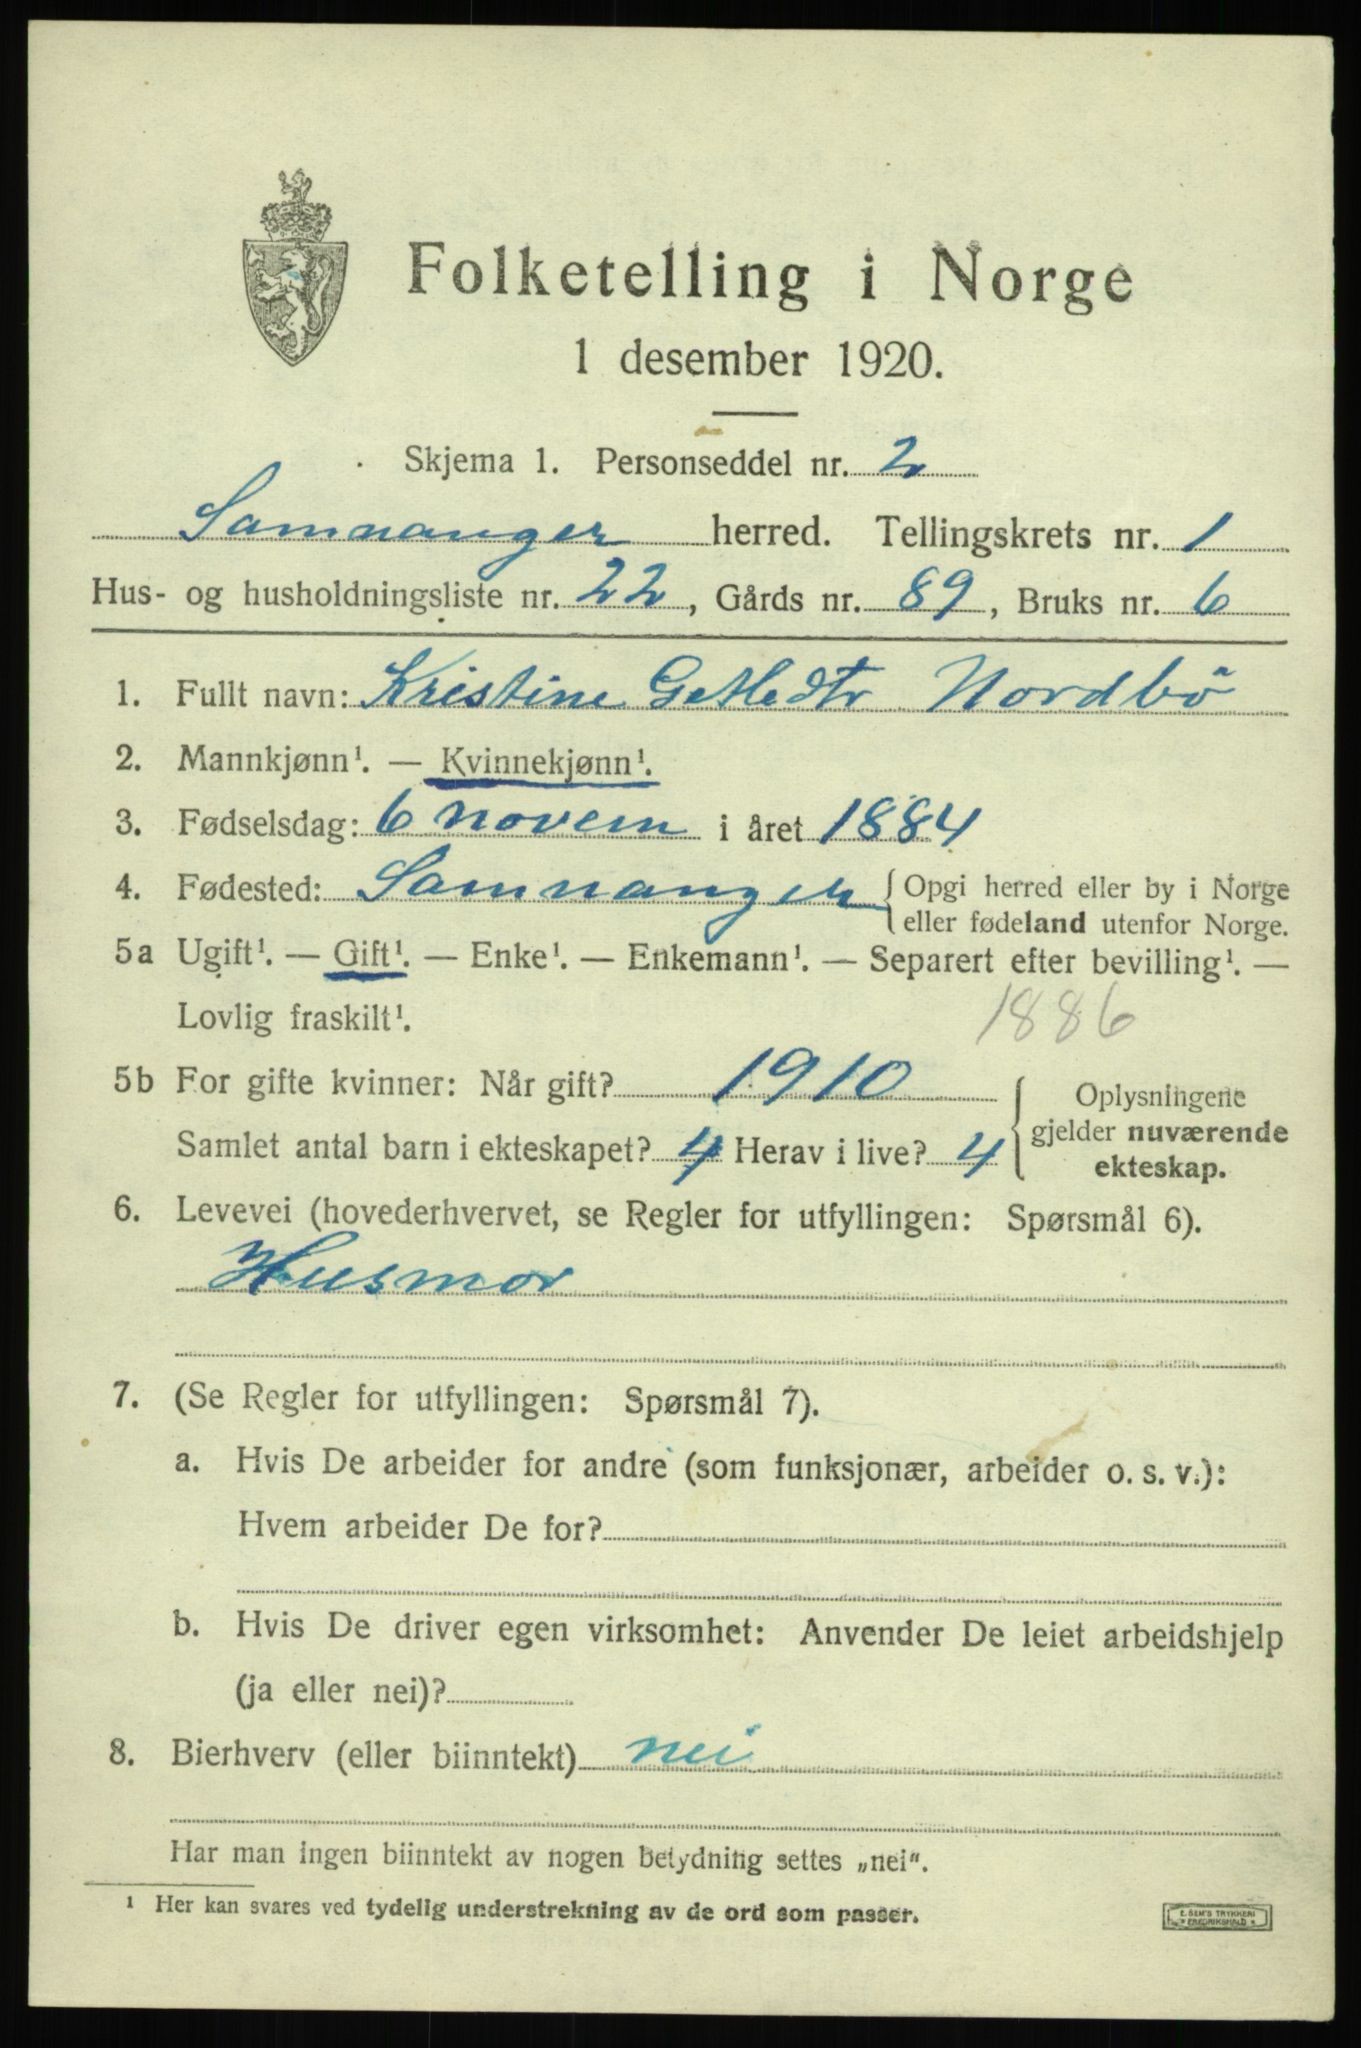 Folketelling i Norge
1 desember 1920.
Skjema 1. Personseddel nr. 2
Samnanger herred. Tellingskrets nr. 1
Hus- og husholdningsliste nr. 22, Gårds nr. 89, Bruks nr. 6
1. Fullt navn: Kristine Nordbö
2. Mannkjønn¹. — Kvinnekjønn¹.
3. Fødselsdag: 6 novem i året 1884
4. Fødested: Samnanger {Opgi herred eller by i Norge
eller fødeland utenfor Norge.
5a Ugift¹. — Gift¹. — Enke¹. — Enkemann¹. — Separert efter bevilling¹. —
Lovlig fraskilt¹. 1886
5b For gifte kvinner: Når gift? 1910
Samlet antal barn i ekteskapet? 4 Herav i live? 4
Oplysningene
gjelder nuværende
ekteskap.
6. Levevei (hovederhvervet, se Regler for utfyllingen: Spørsmål 6).
Husmor
7. (Se Regler for utfyllingen: Spørsmål 7).
a. Hvis De arbeider for andre (som funksjonær, arbeider o. s. v.):
Hvem arbeider De for?
b. Hvis De driver egen virksomhet: Anvender De leiet arbeidshjelp
(ja eller nei)?
8. Bierhverv (eller biinntekt) nei
Har man ingen biinntekt av nogen betydning settes „nei".
¹ Her kan svares ved tydelig understrekning av de ord som passer.
E. SEM'S TRYKKERI
* FREDRIKSHALD *